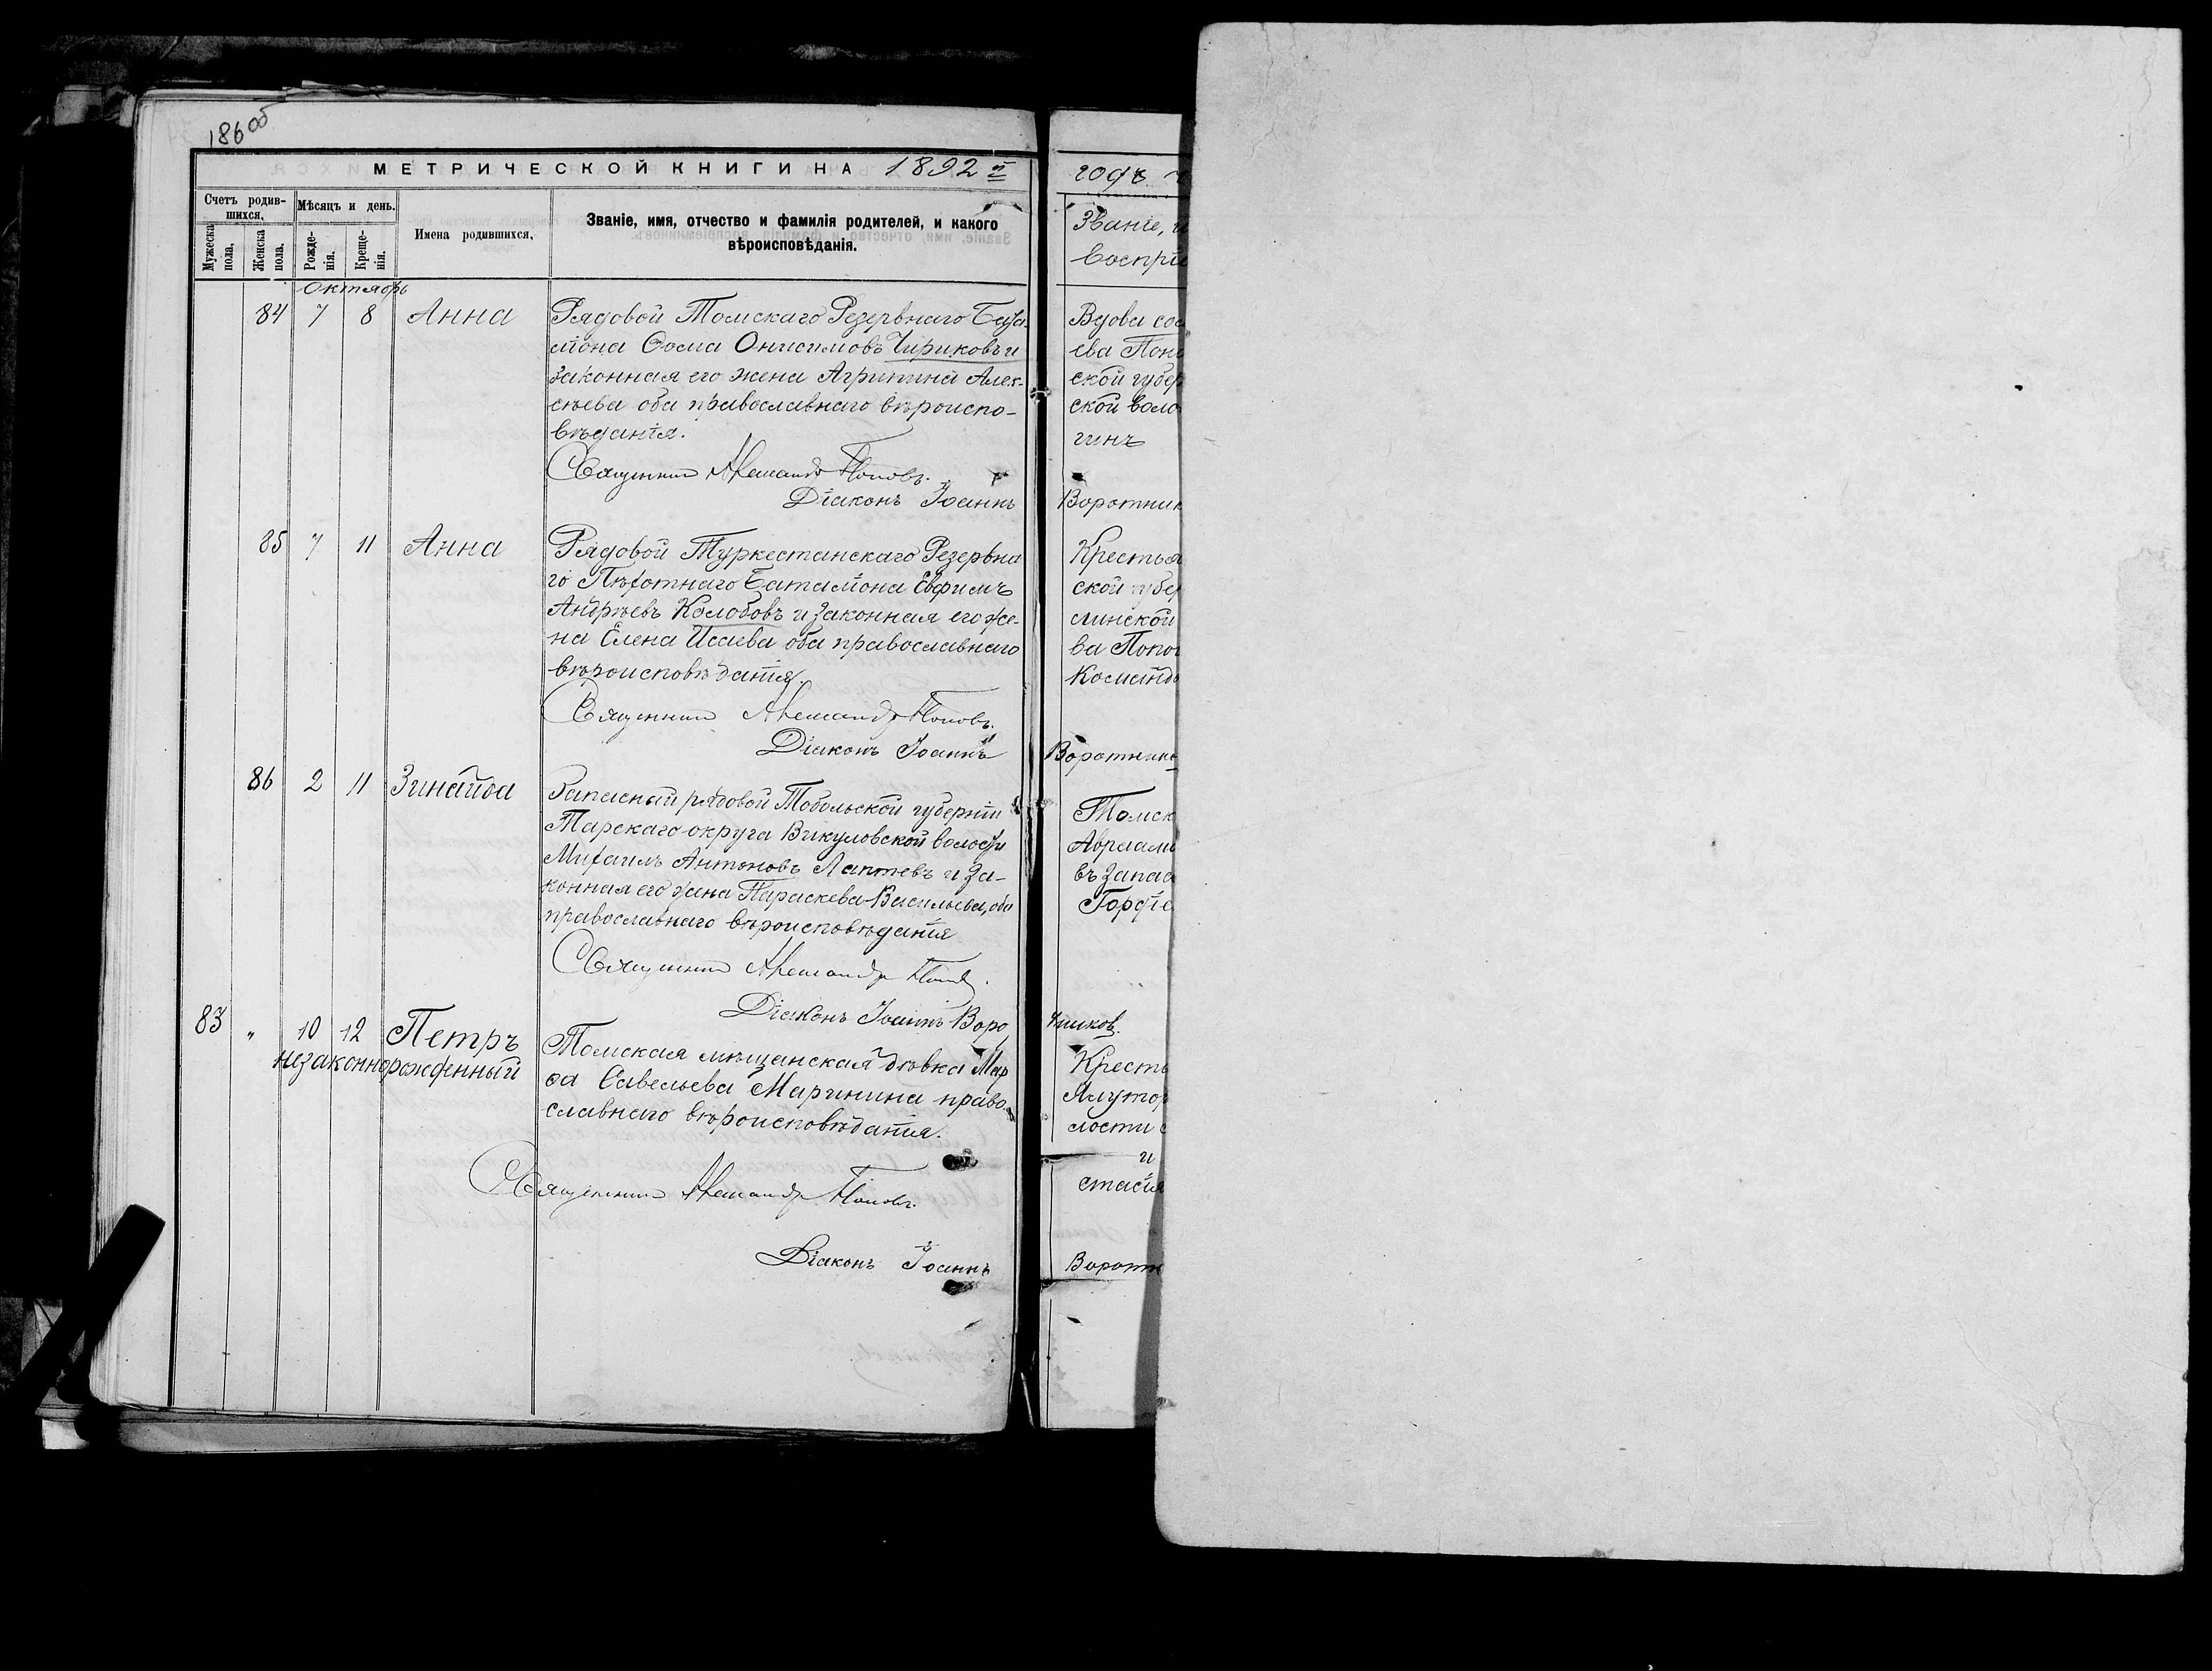 186 об
МЕТРИЧЕСКОЙ КНИГИ НА 1892 й
Счетъ родив-
шихся.
Мѣсяцъ и день.
Мужеска
пола.
Женска
пола.
Рожде-
нія.
Креще-
нія.
Имена родившихся.
Званіе, имя, отчество и фамилія родителей, и какого
вѣроисповѣданія.
Октябрь
84 7 8 Анна
Рядовой Томскаго Резервнаго Бата-
ліона Ѳома Онисимовъ Чириковъ и
законная его жена Агрипина Алек-
сѣева оба православнаго вѣроиспо-
вѣданія.
Священникъ Александръ Поповъ.
Діаконъ Іоаннъ
85 7 11 Анна
Рядовой Туркестанскаго Резервна
го Пѣхотнаго Баталіона Евфимъ
Андреевъ Колобовъ и законная его же-
на Елена Исаева оба православнаго
вѣроисповѣданія.
Священникъ Александръ Поповъ.
Діаконъ Іоаннъ
86 2 11 Зинаида
Запасный рядовой Тобольской губерніи
Тарскаго округа Викуловской волости
Михаилъ Антоновъ Лаптевъ и за-
конная его жена Параскева Васильева, оба
православнаго вѣроисповѣданія
Священникъ Александръ Поповъ.
Діаконъ Іоаннъ Воро
83 " 10 12 Петръ
незаконнорожденный
Томская мѣщанская дѣвка Мар
ѳа Савельева Маринина право-
славнаго вѣроисповѣданія.
Священникъ Александръ Поповъ.
Діаконъ Іоаннъ
годъ
Званіе, и
воспріе
Вдова сол
ева Пон
ской губер
ской воло
гинъ
Воротник
Крестья
ской губер
слинской
ва Попо
Командо
Воротник
Томск
Авраам
въ запас
Гордіе
тниковъ.
Кресть
Ялутор
лости с
и
стасія
Воротн